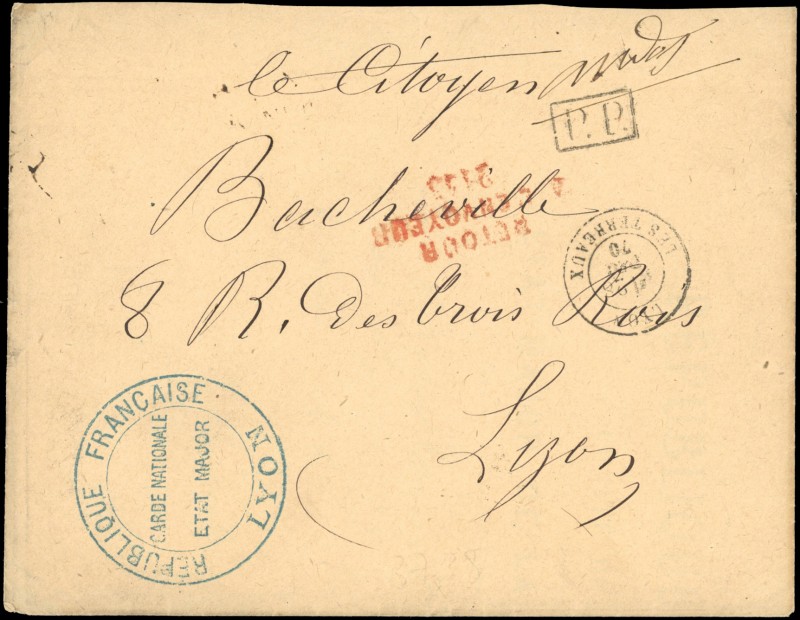 le Citoyen
P. P.
Bacheville
RETOUR
A L'ENVOYEUR
2155
8 R. des trois Rois
LYON
LES TERREAUX
70
Lyon
REPUBLIQUE FRANÇAISE.
LYON
GARDE NATIONALE
ETAT MAJOR